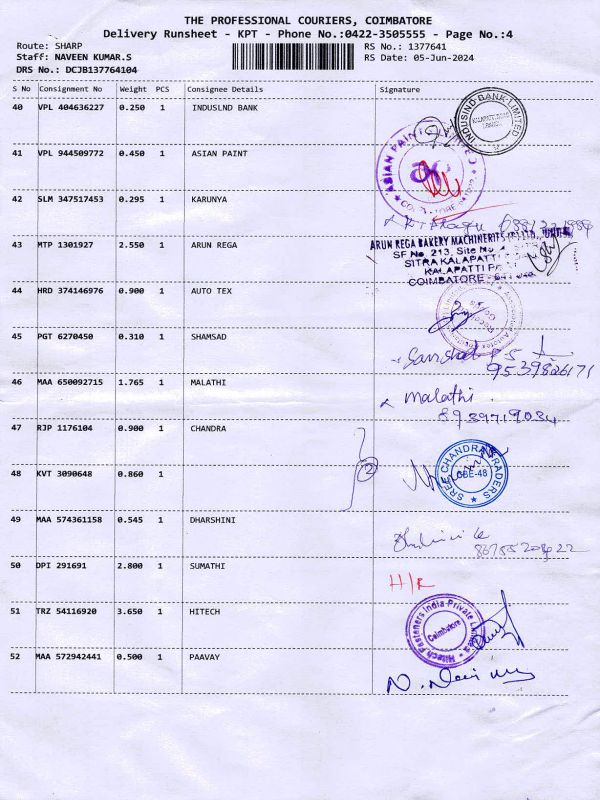 THE PROFESSIONAL COURIERS, COIMBATORE
Delivery Runsheet - KPT - Phone No.:0422-3505555 - Page No.:4
Route: SHARP RS No.: 1377641
Staff: NAVEEN KUMAR.S RS Date: 05-Jun-2024
DRS No.: DCJB137764104
S No Consignment No Weight PCS Consignee Details Signature
40 VPL 404636227 0.250 1 INDUSLND BANK
INDUSIND BANK LIMITED
41 VPL 944509772 0.450 1 ASIAN PAINT
ASIAN PAINTS
42 SLM 347517453 0.295 1 KARUNYA
43 MTP 1301927 2.550 1 ARUN REGA
ARUN REGA BAKERY MACHINERIES
SF No. 213, Site No
SITRA KALAPATTI
KALAPATTI
COIMBATORE
44 HRD 374146976 0.900 1 AUTO TEX
45 PGT 6270450 0.310 1 SHAMSAD
9539826171
46 MAA 650092715 1.765 1 MALATHI
Malathi
8939719034
47 RJP 1176104 0.900 1 CHANDRA
48 KVT 3090648 0.860 1
2
SREE CHANDRA TRADERS
CBE-48
49 MAA 574361158 0.545 1 DHARSHINI
50 DPI 291691 2.800 1 SUMATHI
H/R
51 TRZ 54116920 3.650 1 HITECH
Hitech Fasteners India Private Limited
Coimbatore
52 MAA 572942441 0.500 1 PAAVAY